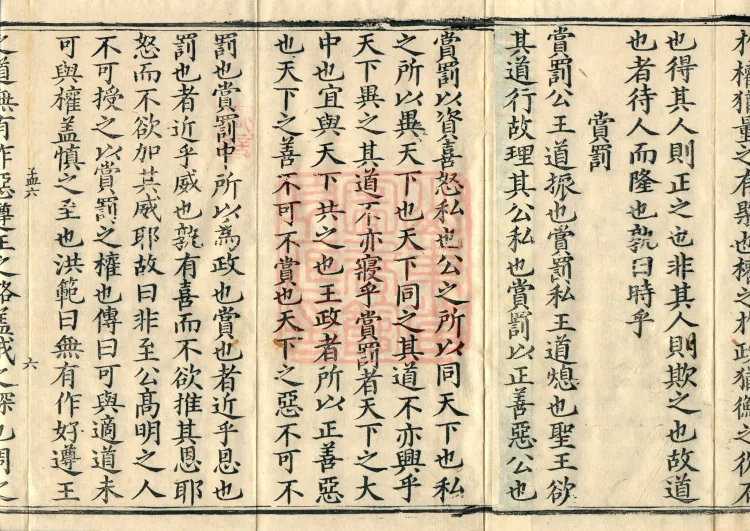 權猶量之有槩也權之於政猶衡之
也得其人則正之也非其人則欺之也故道
也者待人而隆也孰曰時乎
賞罰
賞罰公王道振也賞罰私王道熄也聖王欲
其道行故理其公私也賞罰以正善惡公也
賞罰以資喜怒私也公之所以同天下也私
之所以異天下也天下同之其道不亦興乎
天下異之其道不亦寢乎賞罰者天下之大
中也宜與天下共之也王政者所以正善惡
也天下之善不可不賞也天下之惡不可不
罰也賞罰中所以為政也賞也者近乎恩也
罰也者近乎威也孰有喜而不欲推其恩耶
怒而不欲加其威耶故曰非至公高明之人
不可授之以賞罰之權也傳曰可與適道未
可與權盖慎之至也洪範曰無有作好遵王
孟六 六
之道無有作惡遵王之路盖戒之深也周之